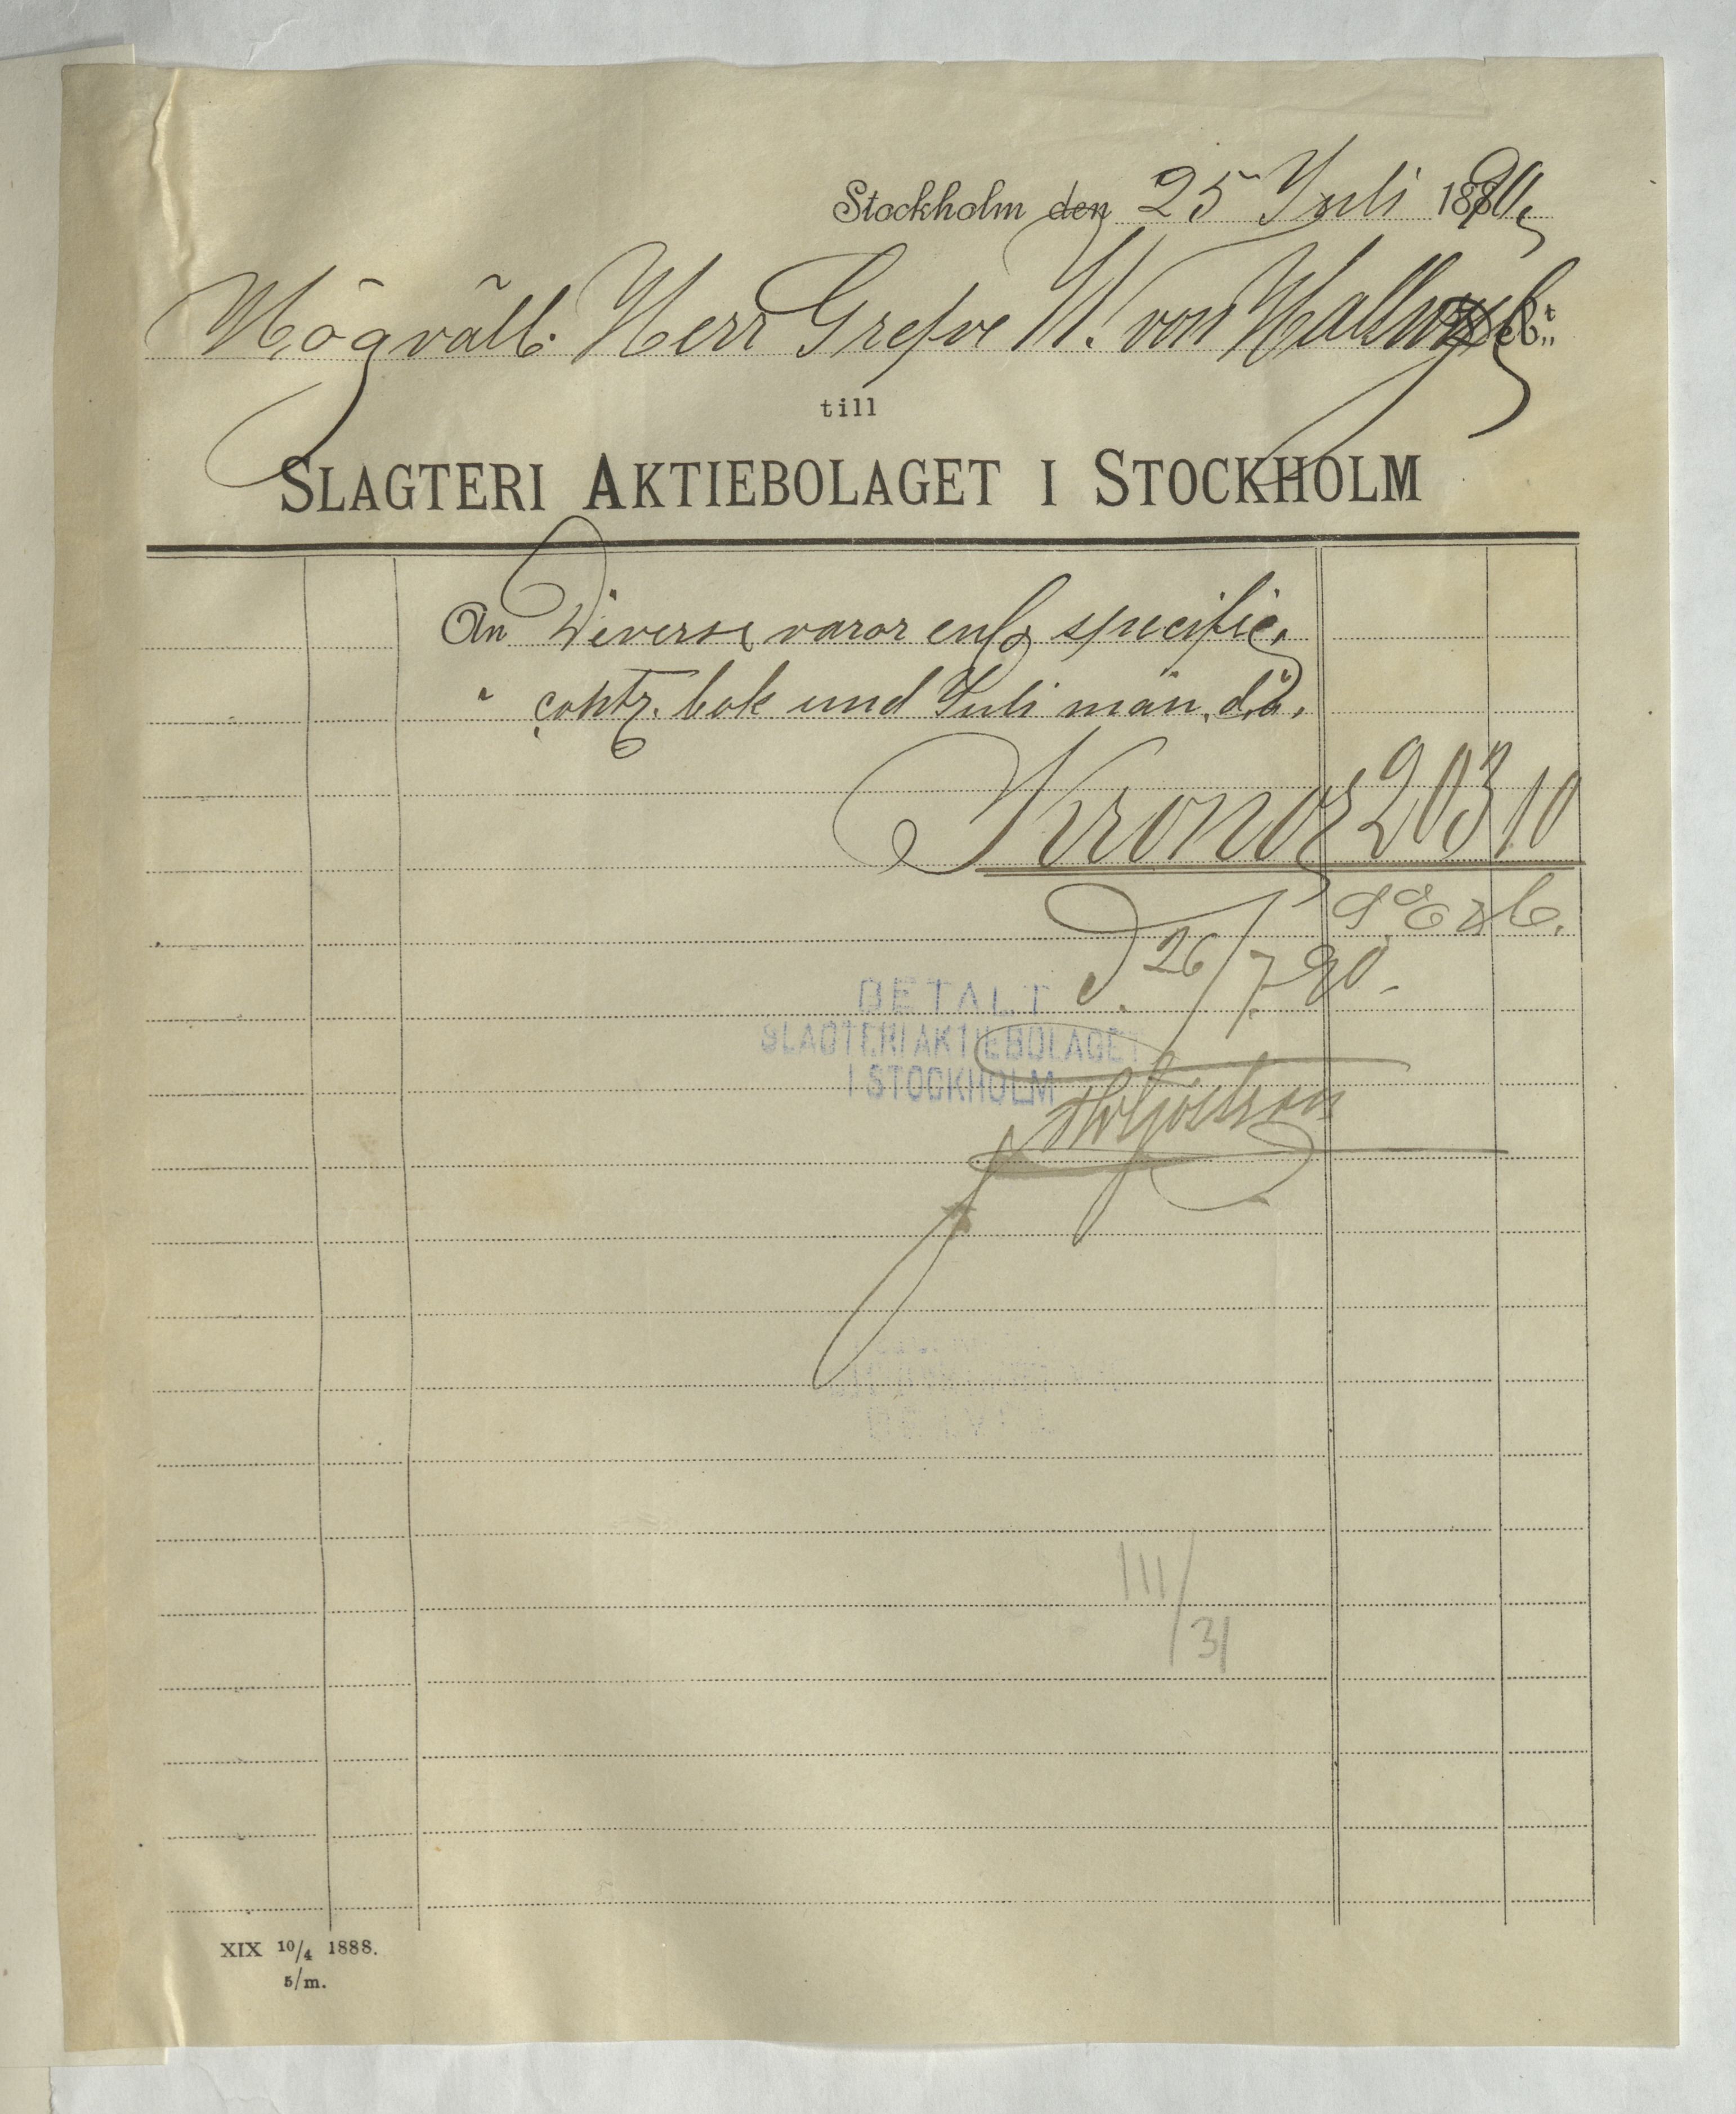 Stockholm den 25 Juli 1890.
Högvälb. Herr Grefve W. von Hallwyl Deb:t
till
SLAGTERI AKTIEBOLAGET I STOCKHOLM
An Diverse varor enl. specific.
" contr. bok und Juli mån. d.å.
Kronor 203 10
D. 26/7 90.
BETALT
SLAGTERI AKTIEBOLAGET
I STOCKHOLM
III/31
XIX 10/4 1888.
5/m.